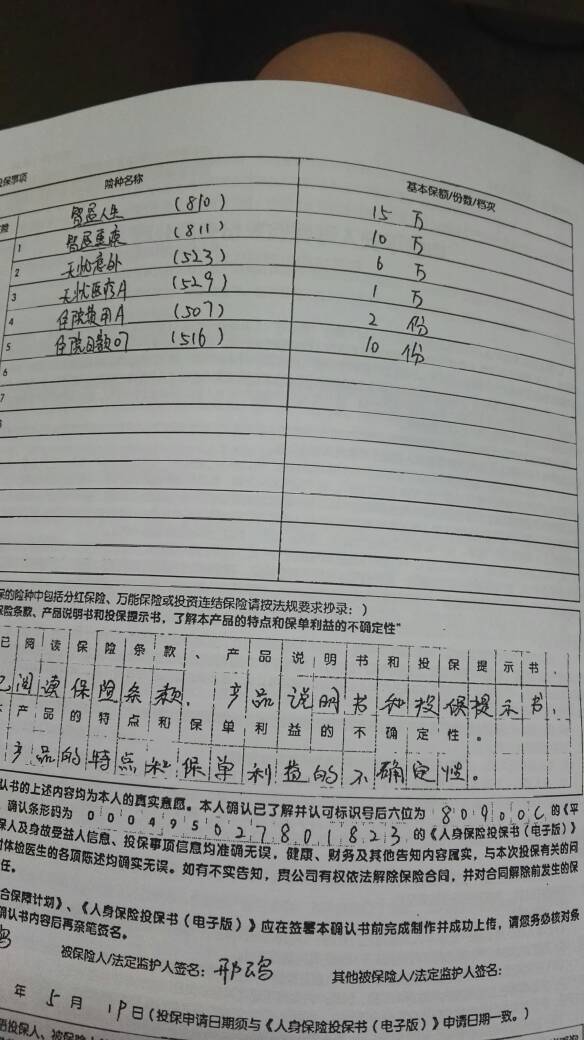 投保事项 险种名称 基本保额/份数/档次
智盈人生 (810) 15 万
1 智盈重疾 (811) 10 万
2 无忧意外 (523) 6 万
3 无忧医疗A (529) 1 万
4 住院费用A (507) 2 份
5 住院日额07 (516) 10 份
6
7
保的险种中包括分红保险、万能保险或投资连结保险请按法规要求抄录：)
保险条款、产品说明书和投保提示书，了解本产品的特点和保单利益的不确定性"
已阅读保险条款、产品说明书和投保提示书，
已阅读保险条款、产品说明书和投保提示书、
本产品的特点和保单利益的不确定性。
产品的特点和保单利益的不确定性。
认书的上述内容均为本人的真实意愿。本人确认已了解并认可标识号后六位为 80900C 的《平
确认条形码为 00049502780 1823 的《人身保险投保书（电子版）》
保人及身故受益人信息、投保事项信息均准确无误，健康、财务及其他告知内容属实，与本次投保有关的问
对体检医生的各项陈述均确实无误。如有不实告知，贵公司有权依法解除保险合同，并对合同解除前发生的保
任。
合保障计划》、《人身保险投保书（电子版）》应在签署本确认书前完成制作并成功上传，请您务必核对条
确认书内容后再亲笔签名。
被保险人/法定监护人签名： 其他被保险人/法定监护人签名：
年 5 月 19 日（投保申请日期须与《人身保险投保书（电子版）》申请日期一致。）